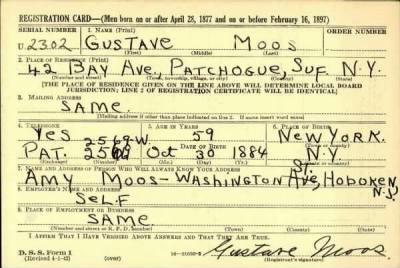 REGISTRATION CARD—(Men born on or after April 28, 1877 and on or before February 16, 1897)
SERIAL NUMBER 1. NAME (Print) ORDER NUMBER
U2302 GUSTAVE MOOS
(First) (Middle) (Last)
2. PLACE OF RESIDENCE (Print)
42 BAY AVE, PATCHOGUE, SUF. N.Y.
(Number and street) (Town, township, village, or city) (County) (State)
[THE PLACE OF RESIDENCE GIVEN ON THE LINE ABOVE WILL DETERMINE LOCAL BOARD
JURISDICTION; LINE 2 OF REGISTRATION CERTIFICATE WILL BE IDENTICAL]
3. MAILING ADDRESS
SAME.
[Mailing address if other than place indicated on line 2. If same insert word same]
4. TELEPHONE 5. AGE IN YEARS 6. PLACE OF BIRTH
YES 2569W 59 NEW YORK.
DATE OF BIRTH (Town or county)
PAT. Oct 30 1884 N.Y.
(Exchange) (Number) (Mo.) (Day) (Yr.) (State or country)
7. NAME AND ADDRESS OF PERSON WHO WILL ALWAYS KNOW YOUR ADDRESS
AMY MOOS - WASHINGTON St. HOBOKEN N.J.
8. EMPLOYER'S NAME AND ADDRESS
SELF
9. PLACE OF EMPLOYMENT OR BUSINESS
SAME
(Number and street or R. F. D. number) (Town) (County) (State)
I AFFIRM THAT I HAVE VERIFIED ABOVE ANSWERS AND THAT THEY ARE TRUE.
D. S. S. Form 1
(Revised 4-1-42) (over) Gustave Moos
(Registrant's signature)